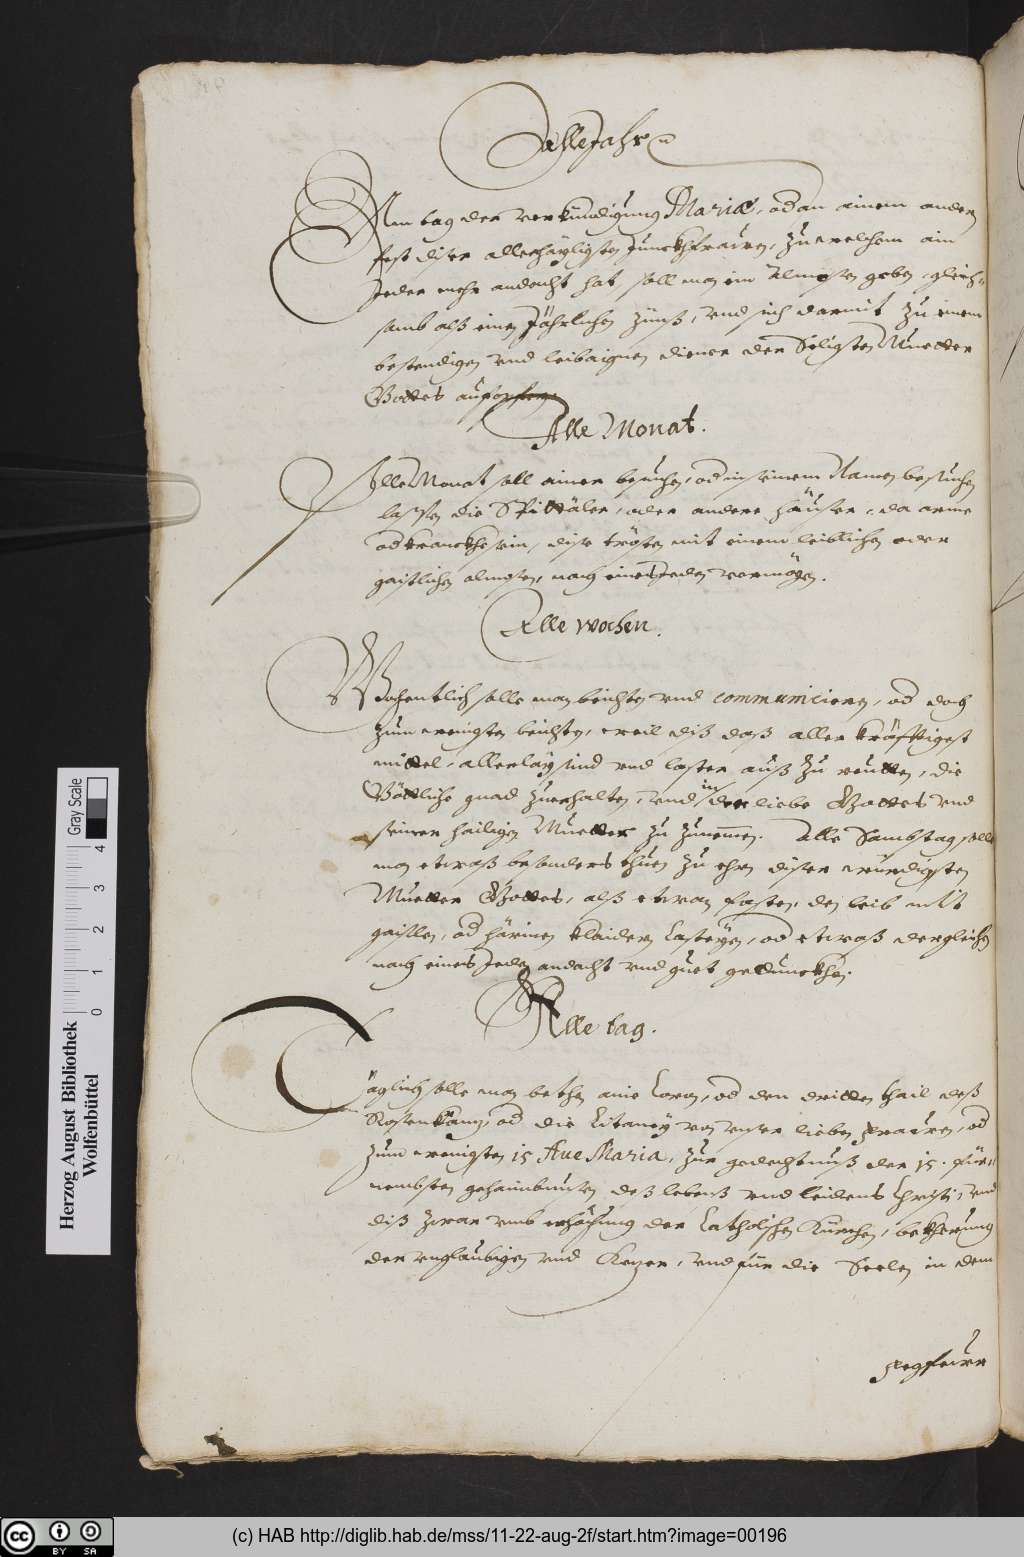 Alle Jahr
Am tag der verkündigung Mariæ, od an ainem andern
fest diser allerhäyligsten Junckhfrawen, zu welchem ain
Jeder mehr andacht hat, soll man ein Almosen geben, gleich=
samb alß einen Jährlichen Zinnß, vnd sich darmit zu einem
bestendigen vnd leibaignen diener der Seligsten Muetter
Gottes aufopfern.
Alle Monat.
Alle Monat soll einer besuchen, od in seinem Namen besuchen
lassen die Spitäler, oder andere häuser, da arme
od kranckhe sein, dise trösten mit einem leiblichen oder
gaistlichen almosen, nach eines Jeden vermögen.
Alle wochen.
Wochentlich solle man beichten vnd communicieren, od doch
zum wenigsten beichten, weil diß daß aller kräfftigest
mittel, allerlay sünd vnd laster auß zu reutten, die
Göttliche gnad zuerhalten, vnd in der liebe Gottes vnd
seiner hailigen Muetter zu zunemen. Alle Sambstag solle
man etwaß besonders thuen zu ehren diser würdigsten
Muetter Gottes, alß etwan fasten, den leib mit
gaißlen, od härinen klaidern Casteyen, od etwaß dergleichen
nach eines Jeden andacht vnd guet gedunckhen.
Alle tag.
Täglich solle man bethen ain Coron, od den dritten thail deß
Rosenkranz, od die Litaney von vnser lieben frawen, od
zum wenigsten 15 Aue Maria, zur gedechtnuß der 15. für=
nembsten gehaimbnusen deß lebens vnd leidens Christi, vnd
diß zwar vmb erhöchung der Catholischen Kürchen, bekherung
der vnglaubigen vnd Kezer, vnd für die Seelen in dem
fegfewr
Herzog August Bibliothek
Wolfenbüttel
Gray Scale
0 1 2 3 4
cc BY SA
(c) HAB http://diglib.hab.de/mss/11-22-aug-2f/start.htm?image=00196